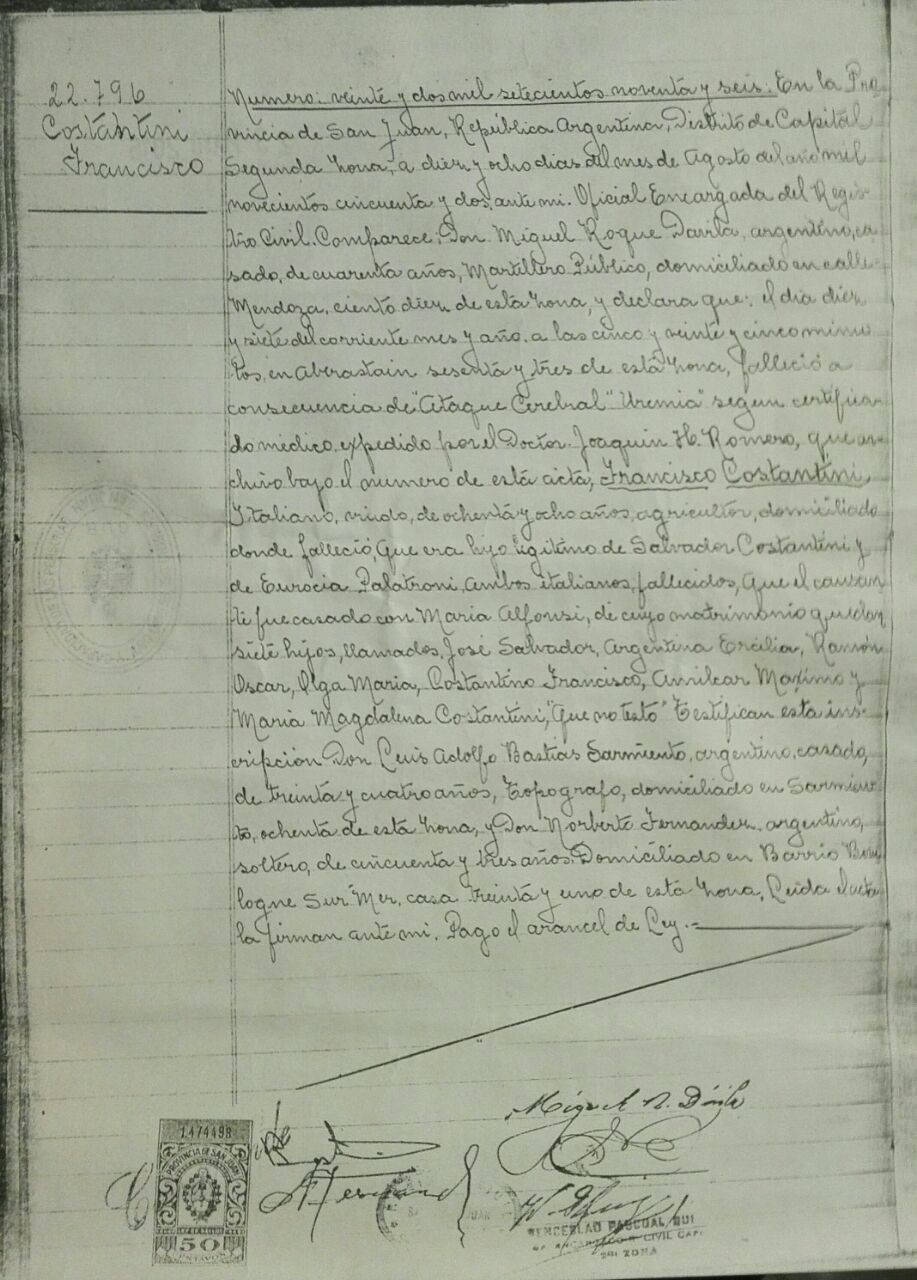 22.796
Costantini
Francisco
Numero: veinte y dos mil setecientos noventa y seis: En la Pro-
vincia de San Juan, República Argentina, Distrito de Capital
Segunda zona, a diez y ocho dias del mes de Agosto del año mil
novecientos cincuenta y dos, ante mi. Oficial Encargada del Regis-
tro Civil. Comparece: Don Miguel Roque Davila, argentino, ca-
sado, de cuarenta años, Martillero Público, domiciliado en calle
Mendoza, ciento diez de esta zona, y declara que: el dia diez
y siete del corriente mes y año, a las cinco y veinte y cinco minu-
tos, en Aberastain sesenta y tres de esta zona, falleció a
consecuencia de "Ataque Cerebral" "Uremia" segun certifica-
do medico, expedido por el Doctor Joaquin H. Romero, que ar-
chivo bajo el numero de esta acta, Francisco Costantini,
Italiano, viudo, de ochenta y ocho años, agricultor, domiciliado
donde falleció, Que era hijo legitimo de Salvador Costantini y
de Eurocia Palatroni, ambos italianos, fallecidos, Que el causan-
te fue casado con Maria Alfonsi, de cuyo matrimonio quedan
siete hijos, llamados, José Salvador, Argentina Ercilia, Ramón
Oscar, Olga Maria, Costantino Francisco, Amilcar Maximo y
Maria Magdalena Costantini, "Que no testó" Testifican esta ins-
cripcion Don Luis Adolfo Bastias Sarmiento, argentino, casado,
de treinta y cuatro años, Topografo, domiciliado en Sarmien-
to, ochenta de esta zona, y Don Norberto Fernandez, argentino,
soltero, de cincuenta y tres años, Domiciliado en Barrio Bou-
logne Sur Mer, casa treinta y uno de esta zona, Leida el acta
la firman ante mi. Pago el arancel de Ley.-
Miguel R. Dávila
1474499
PROVINCIA DE SAN JUAN
50
WENCESLAO PASCUAL QUI
CIVIL CAP.
2DA ZONA